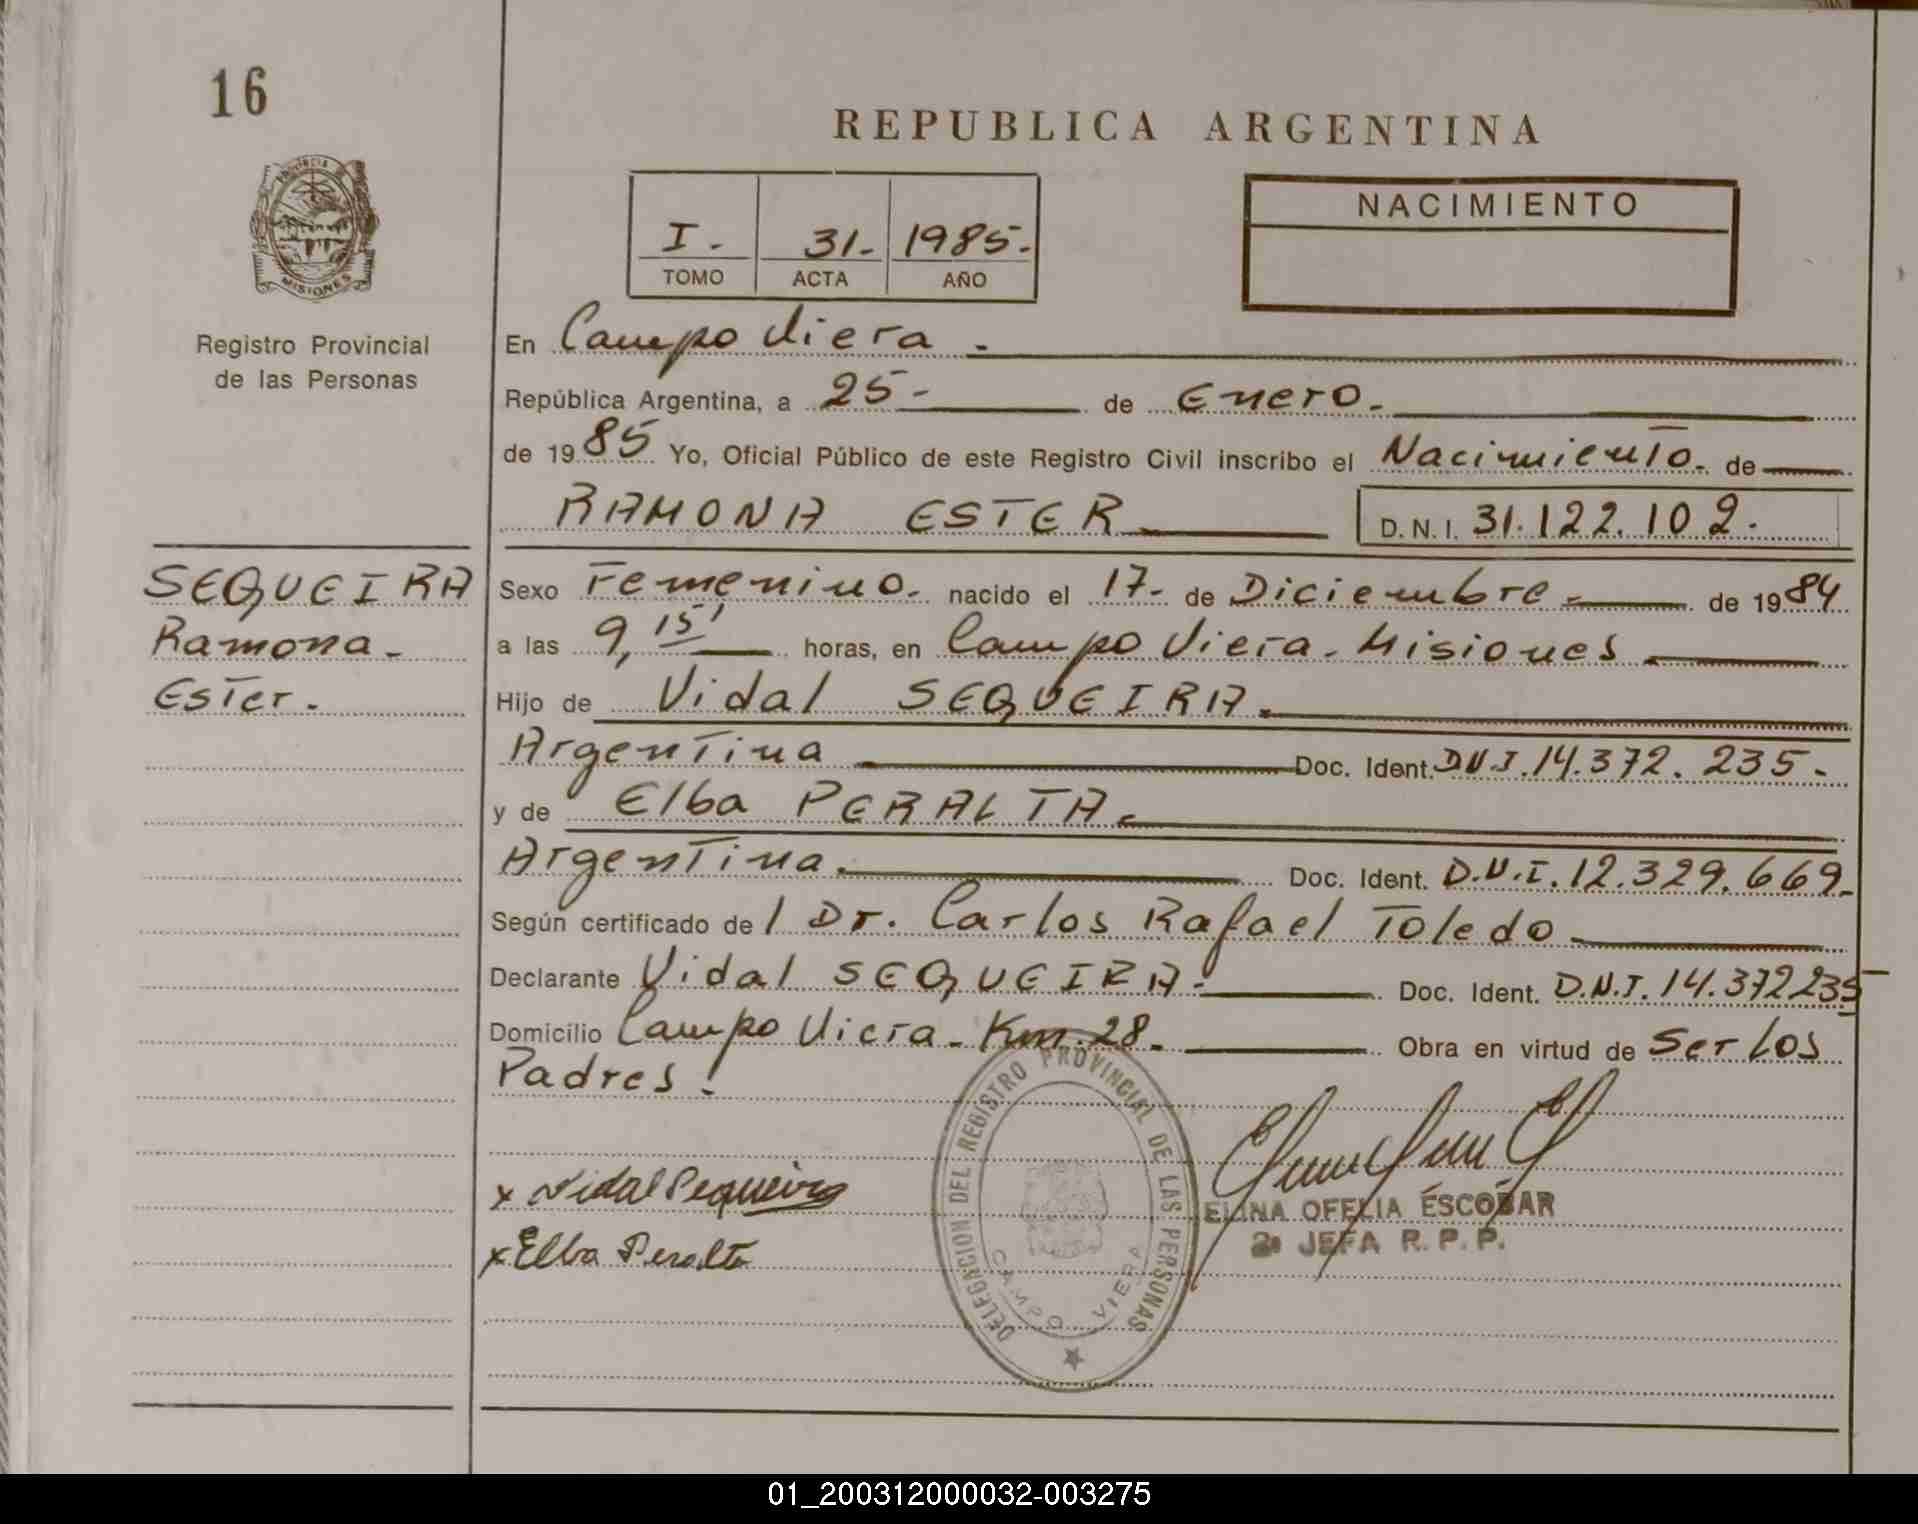 16
REPUBLICA ARGENTINA
PROVINCIA
MISIONES
Registro Provincial
de las Personas
I. 31. 1985.
TOMO ACTA AÑO
NACIMIENTO
En Campo Viera.
República Argentina, a 25 de Enero.
de 1985 Yo, Oficial Público de este Registro Civil inscribo el Nacimiento. de
RAMONA ESTER D.N.I. 31.122.102.
SEQUEIRA
Ramona.
Ester.
Sexo Femenino. nacido el 17. de Diciembre de 1984
a las 9,15' horas, en Campo Viera. Misiones
Hijo de Vidal SEQUEIRA.
Argentina Doc. Ident. D.N.I. 14.372.235.
y de Elba PERALTA.
Argentina. Doc. Ident. D.N.I. 12.329.669.
Según certificado del Dr. Carlos Rafael Toledo
Declarante Vidal SEQUEIRA. Doc. Ident. D.N.I. 14.372235
Domicilio Campo Viera. Km. 28. Obra en virtud de Ser Los
Padres.
x Vidal Sequeira
x Elba Peralta
DELEGACION DEL REGISTRO PROVINCIAL DE LAS PERSONAS
CAMPO VIERA
ELINA OFELIA ESCOBAR
2ª JEFA R. P. P.
01_200312000032-003275